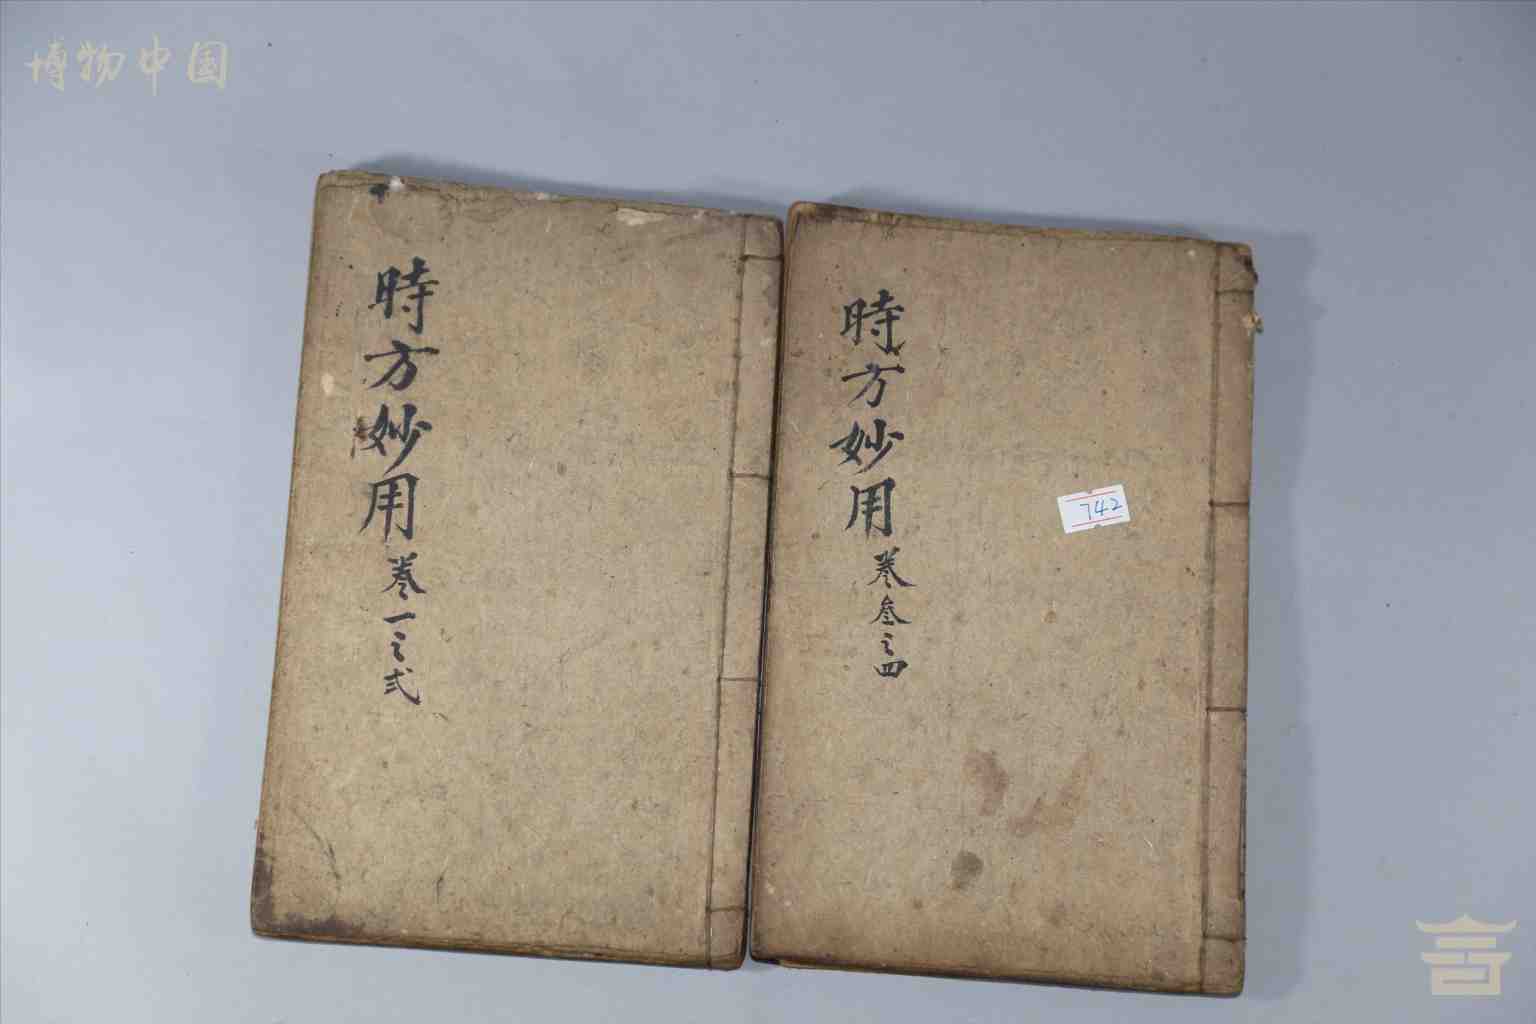 博物中国
時方妙用 卷一之弍
時方妙用 卷叁之四
742